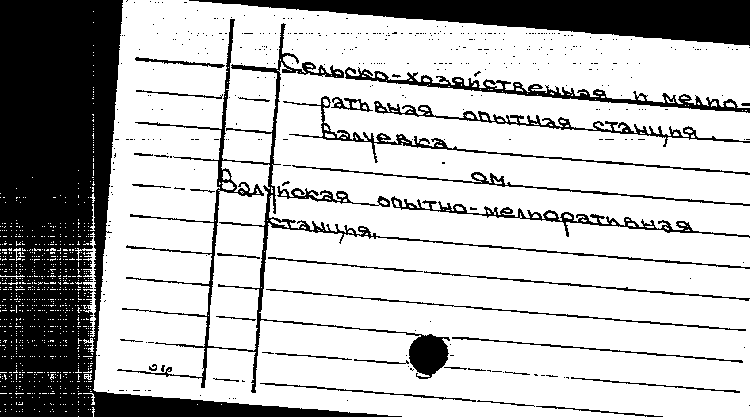 Сельско-хозяйственная и мелио-
ративная опытная станция.
Валуевка.
см.
Валуйская опытно-мелиоративная
станция.